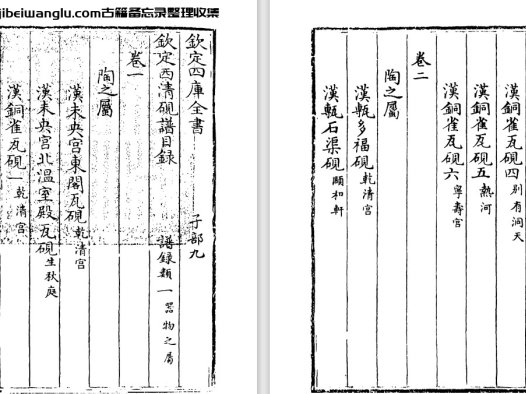 jibeiwanglu.com古籍备忘录整理收集
欽定四庫全書 子部九
欽定西清硯譜目録 譜録類一器物之屬
卷一
陶之屬
漢未央宫東閣瓦硯乾清宫
漢未央宫北温室殿瓦硯生秋庭
漢銅雀瓦硯一乾清宫
漢銅雀瓦硯四别有洞天
漢銅雀瓦硯五熱河
漢銅雀瓦硯六寧壽宫
卷二
陶之屬
漢甎多福硯乾清宫
漢甎石渠硯頤和軒